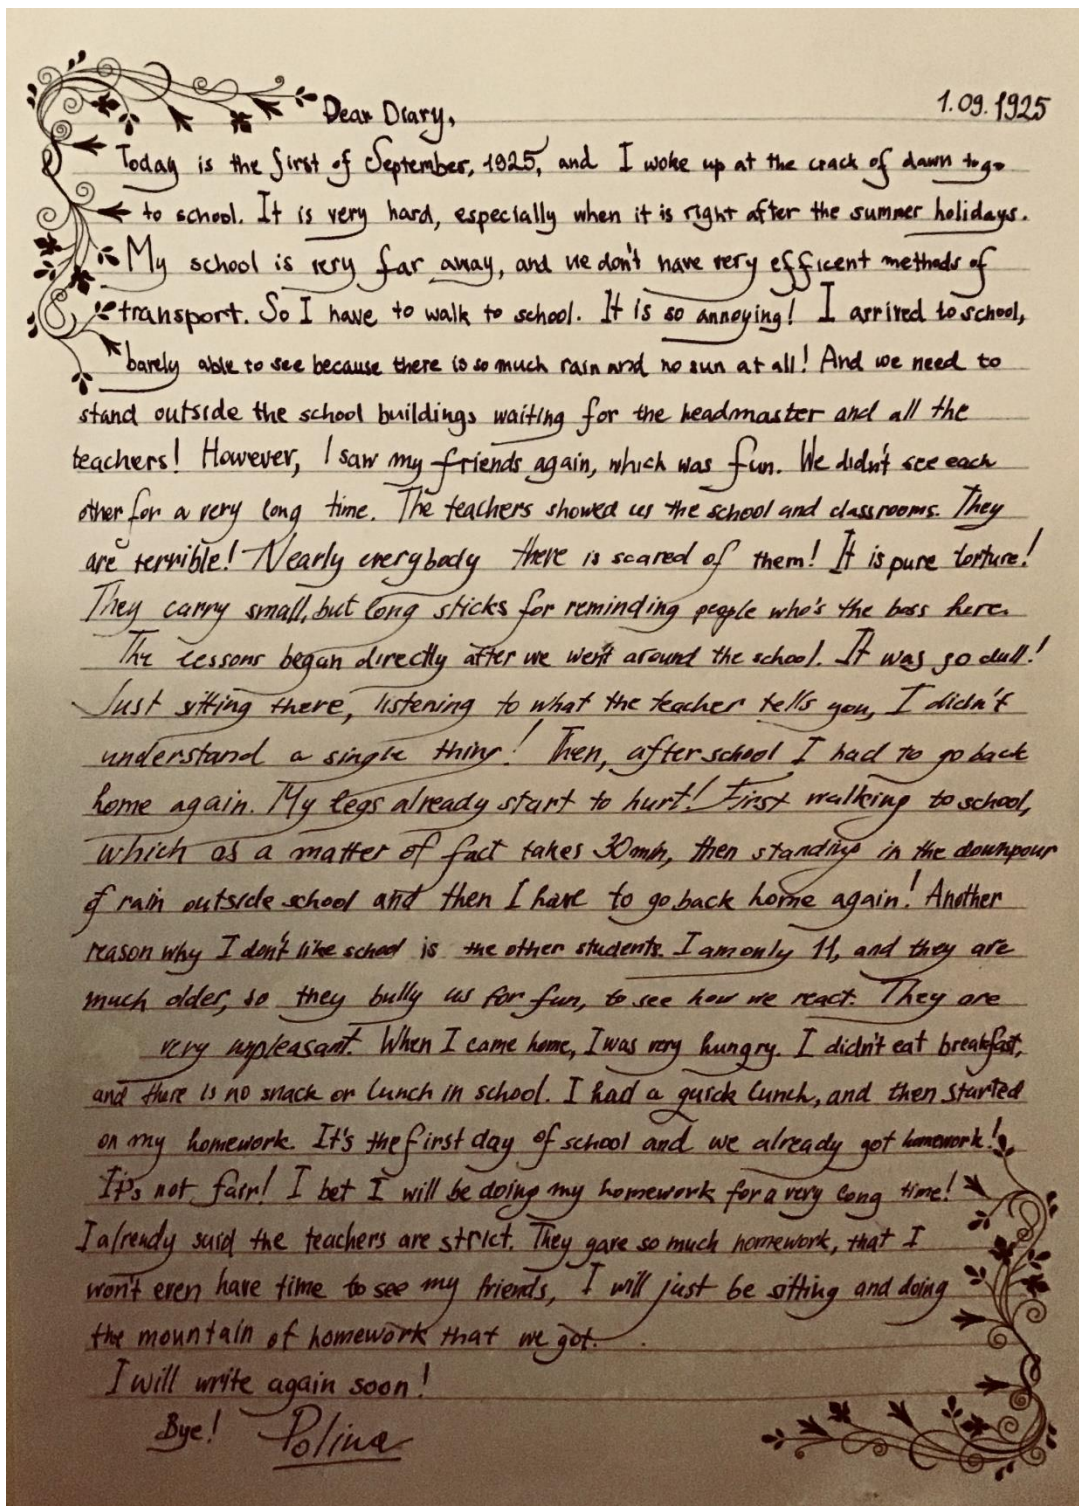 1.09.1925
Dear Diary,
Today is the first of September, 1925, and I woke up at the crack of dawn to go
to school. It is very hard, especially when it is right after the summer holidays.
My school is very far away, and we don't have very efficent methods of
transport. So I have to walk to school. It is so annoying! I arrived to school,
barely able to see because there is so much rain and no sun at all! And we need to
stand outside the school buildings waiting for the headmaster and all the
teachers! However, I saw my friends again, which was fun. We didn't see each
other for a very long time. The teachers showed us the school and classrooms. They
are terrible! Nearly everybody there is scared of them! It is pure torture!
They carry small, but long sticks for reminding people who's the boss here.
The lessons began directly after we went around the school. It was so dull!
Just sitting there, listening to what the teacher tells you, I didn't
understand a single thing! Then, after school I had to go back
home again. My legs already start to hurt! First walking to school,
which as a matter of fact takes 30min, then standing in the downpour
of rain outside school and then I have to go back home again! Another
reason why I don't like school is the other students. I am only 11, and they are
much older, so they bully us for fun, to see how we react. They are
very unpleasant. When I came home, I was very hungry. I didn't eat breakfast,
and there is no snack or lunch in school. I had a quick lunch, and then started
on my homework. It's the first day of school and we already got homework!
It's not fair! I bet I will be doing my homework for a very long time!
I already said the teachers are strict. They gave so much homework, that I
won't even have time to see my friends, I will just be sitting and doing
the mountain of homework that we got.
I will write again soon!
Bye! Polina